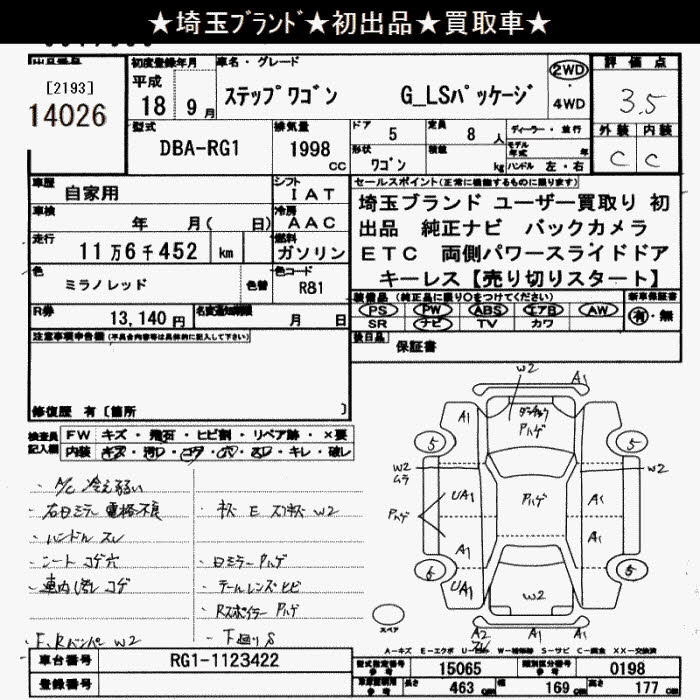 ★埼玉ﾌﾞﾗﾝﾄﾞ★初出品★買取車★
[2193]
14026
初度登録年月
平成
18 9 月
車名・グレード
ステップワゴン G_LSパッケージ
2WD
・
4WD
評価点
3.5
外装 内装
C C
型式
DBA-RG1
排気量
1998
cc
ドア
5
定員
8 人
ディーラー・並行
モデル年式 年
形状
ワゴン
積載
kg
ハンドル 左・右
車歴
自家用
シフト
IAT
車検
年 月( 日)
冷房
AAC
走行
11万6千452 km
燃料
ガソリン
色
ミラノレッド
色替
色コード
R81
R券
13,140 円
名変通知期限
月 日
セールスポイント(正常に機能するものに限ります)
埼玉ブランド ユーザー買取り 初
出品 純正ナビ バックカメラ
ETC 両側パワースライドドア
キーレス【売り切りスタート】
装備品 (純正品に限り○をつけてください)
新車保証書
PS PW ABS エアB AW
有・無
SR ナビ TV カワ
後日品
保証書
注意事項申告欄(不具合内容等は具体的に記入して下さい)
修復歴 有〔箇所 〕
検査員
記入欄
FW キズ・飛石・ヒビ割・リペア跡・×要
内装・キズ・汚レ・コゲ・穴・スレ・キレ・破レ
・A/C 冷え弱い
・右日ミラー電格不良
・ハンドルスレ
・シートコゲ穴
・車内汚レコゲ
・F,Rバンパー W2
・日ミラーハゲ
・テールレンズヒビ
・Rスポイラーハゲ
・下廻りS
W2
A1
A1
A1
ハゲ
5
5
W2
ムラ
W2
ハゲ
UA1
ハゲ
A1
A1
A1
6
5
UA1
W2
スペア
A2
A1
A1
A-キズ E-エクボ U- W- S-サビ C-腐食 XX-交換済
車台番号
RG1-1123422
登録番号
型式指定番号
参考
15065
類別区分番号
参考
0198
長さ
463 cm
幅
169 cm
高さ
177 cm